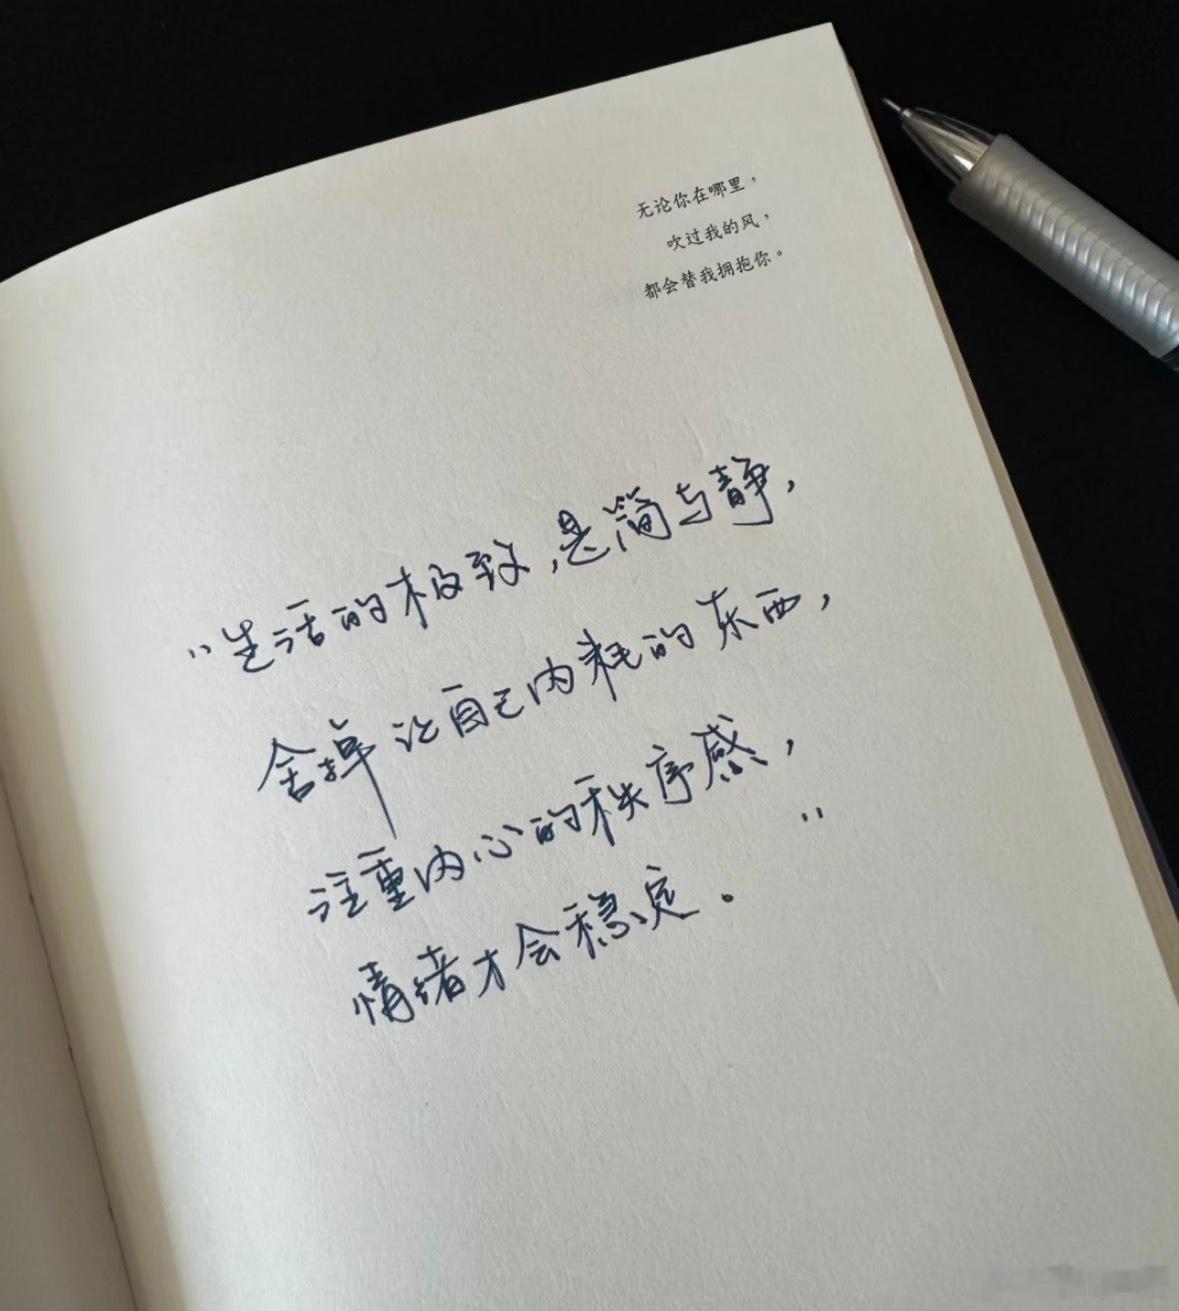 无论你在哪里，
吹过我的风，
都会替我拥抱你。
“生活的极致，是简与静，
舍掉让自己内耗的东西，
注重内心的秩序感，
情绪才会稳定。”